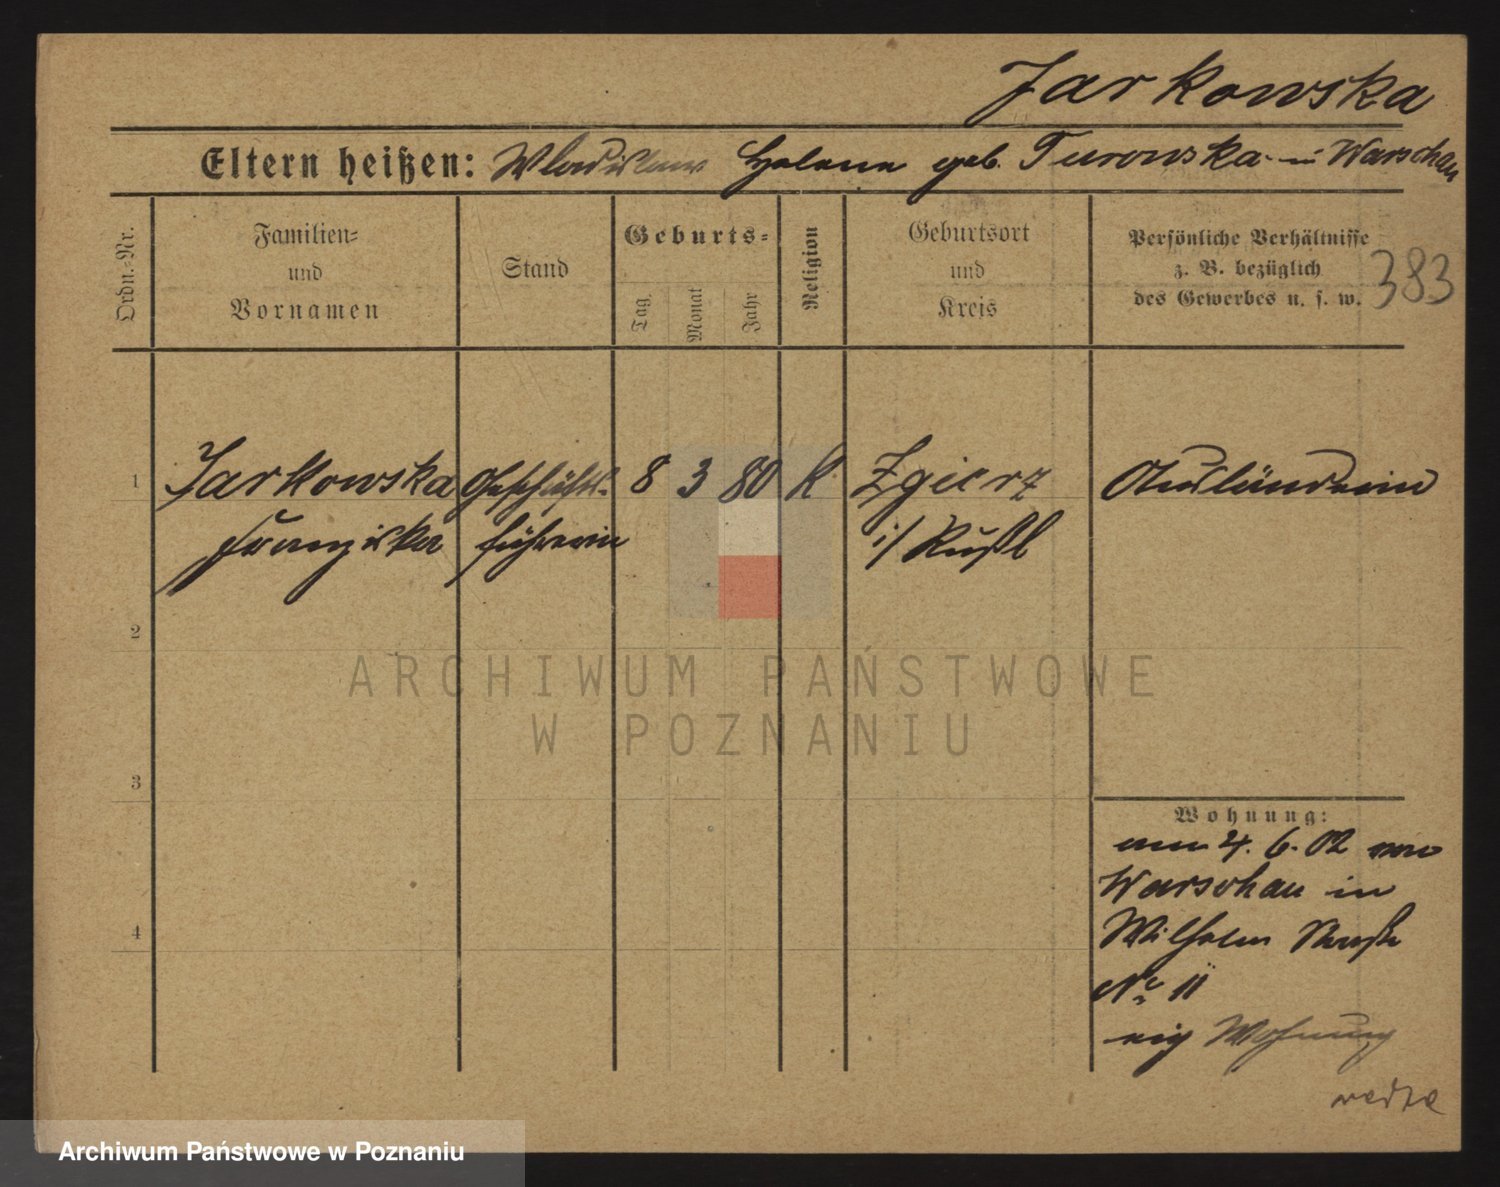 Jarkowska
Eltern heißen: Wladislaus Helene geb. Turowska in Warschau
Ordn.-Nr.
Familien-
und
Vornamen
Stand
Geburts-
Tag.
Monat
Jahr
Religion
Geburtsort
und
Kreis
Persönliche Verhältnisse
z. B. bezüglich
des Gewerbes u. s. w.
383
1 Jarkowska Geschäfts- 8 3 80 K Zgierz Ausländerin
Franziska führerin i/ Rußl
2
3
4
ARCHIWUM PAŃSTWOWE
W POZNANIU
Wohnung:
am 4. 6. 02 von
Warschau in
Wilhelm Straße
No 11
eig Wohnung
Archiwum Państwowe w Poznaniu